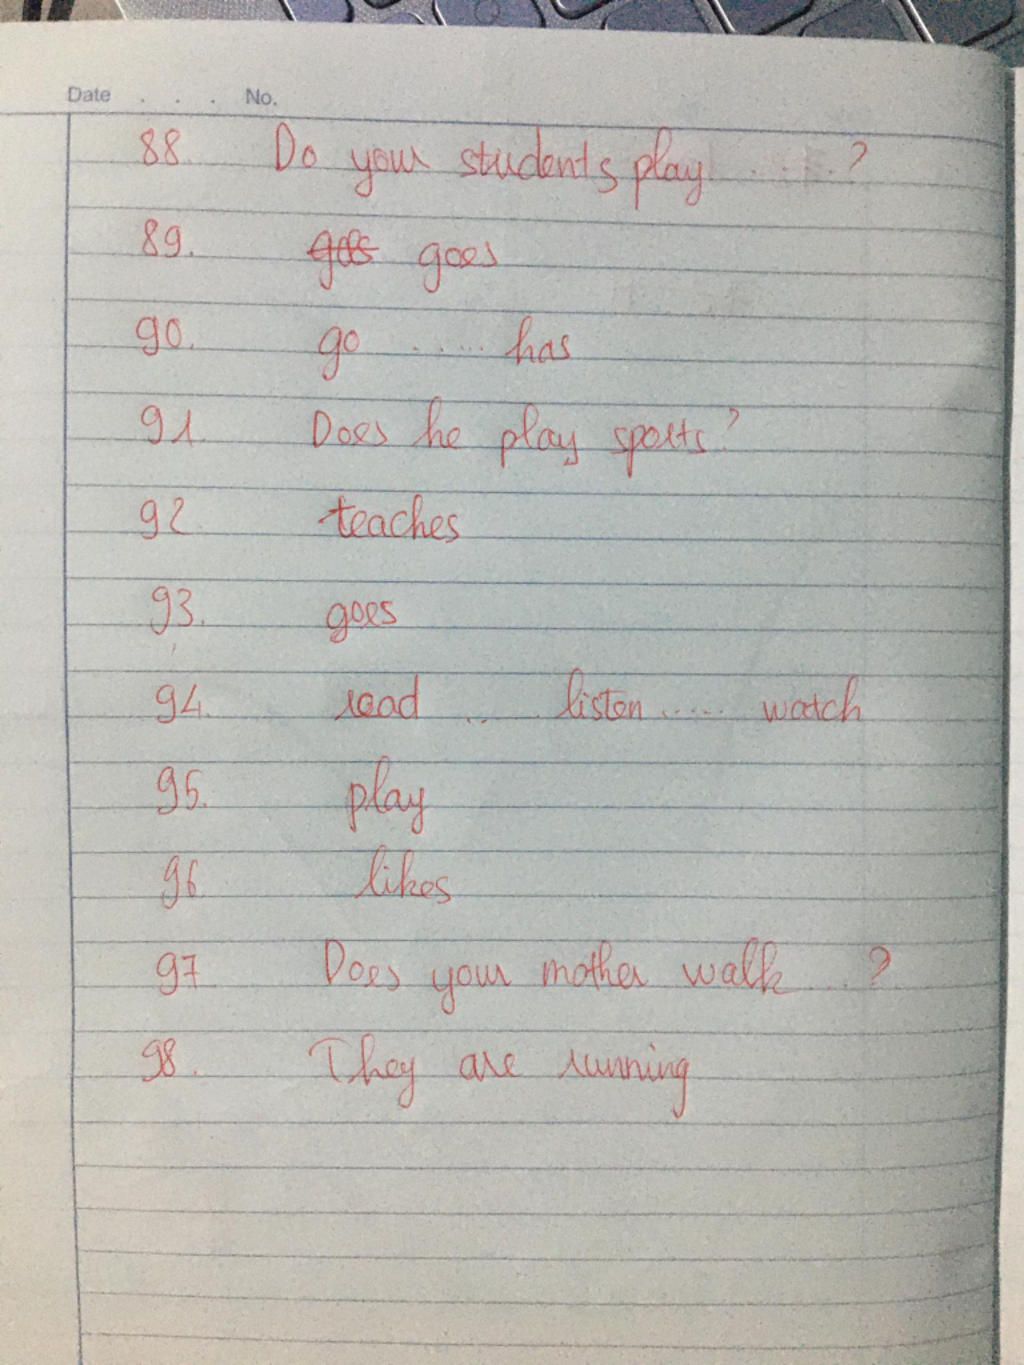 Date . . . No.
88. Do your students play ....... ?
89. goes
90. go ..... has
91. Does he play sports?
92. teaches
93. goes
94. read .. listen ..... watch
95. play
96. likes
97 Does your mother walk ... ?
98. They are running